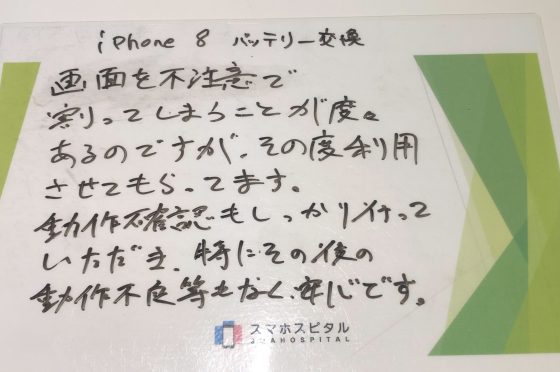 iPhone 8 バッテリー交換
画面を不注意で
割ってしまうことが度々
あるのですが、その度利用
させてもらってます。
動作確認もしっかり行って
いただき、特にその後の
動作不良等もなく、安心です。
スマホスピタル
SMAHOSPITAL